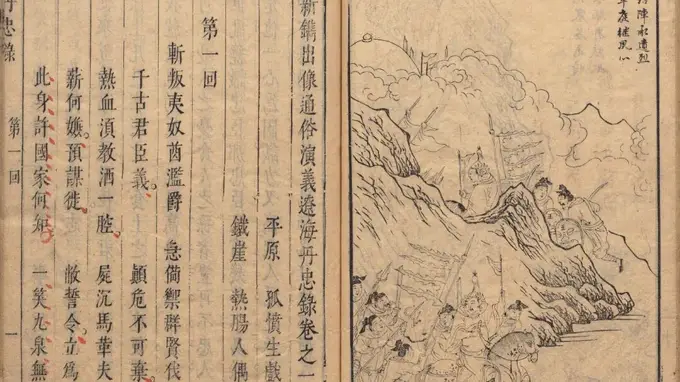 陣永遺烈
新鐫出像通俗演義遼海丹忠錄卷之一
平原 孤憤生戲
鐵崖 熱腸人偶
第一回
斬叛夷奴酋濫爵 急備禦群賢伐
千古君臣義 顛危不可棄
熱血湏教洒一腔。 屍沉馬革夫
薪何嫌。預謀徙。 敝誓令。立爲
此身許國家何知 一笑九泉無
丹忠錄 第一回 一